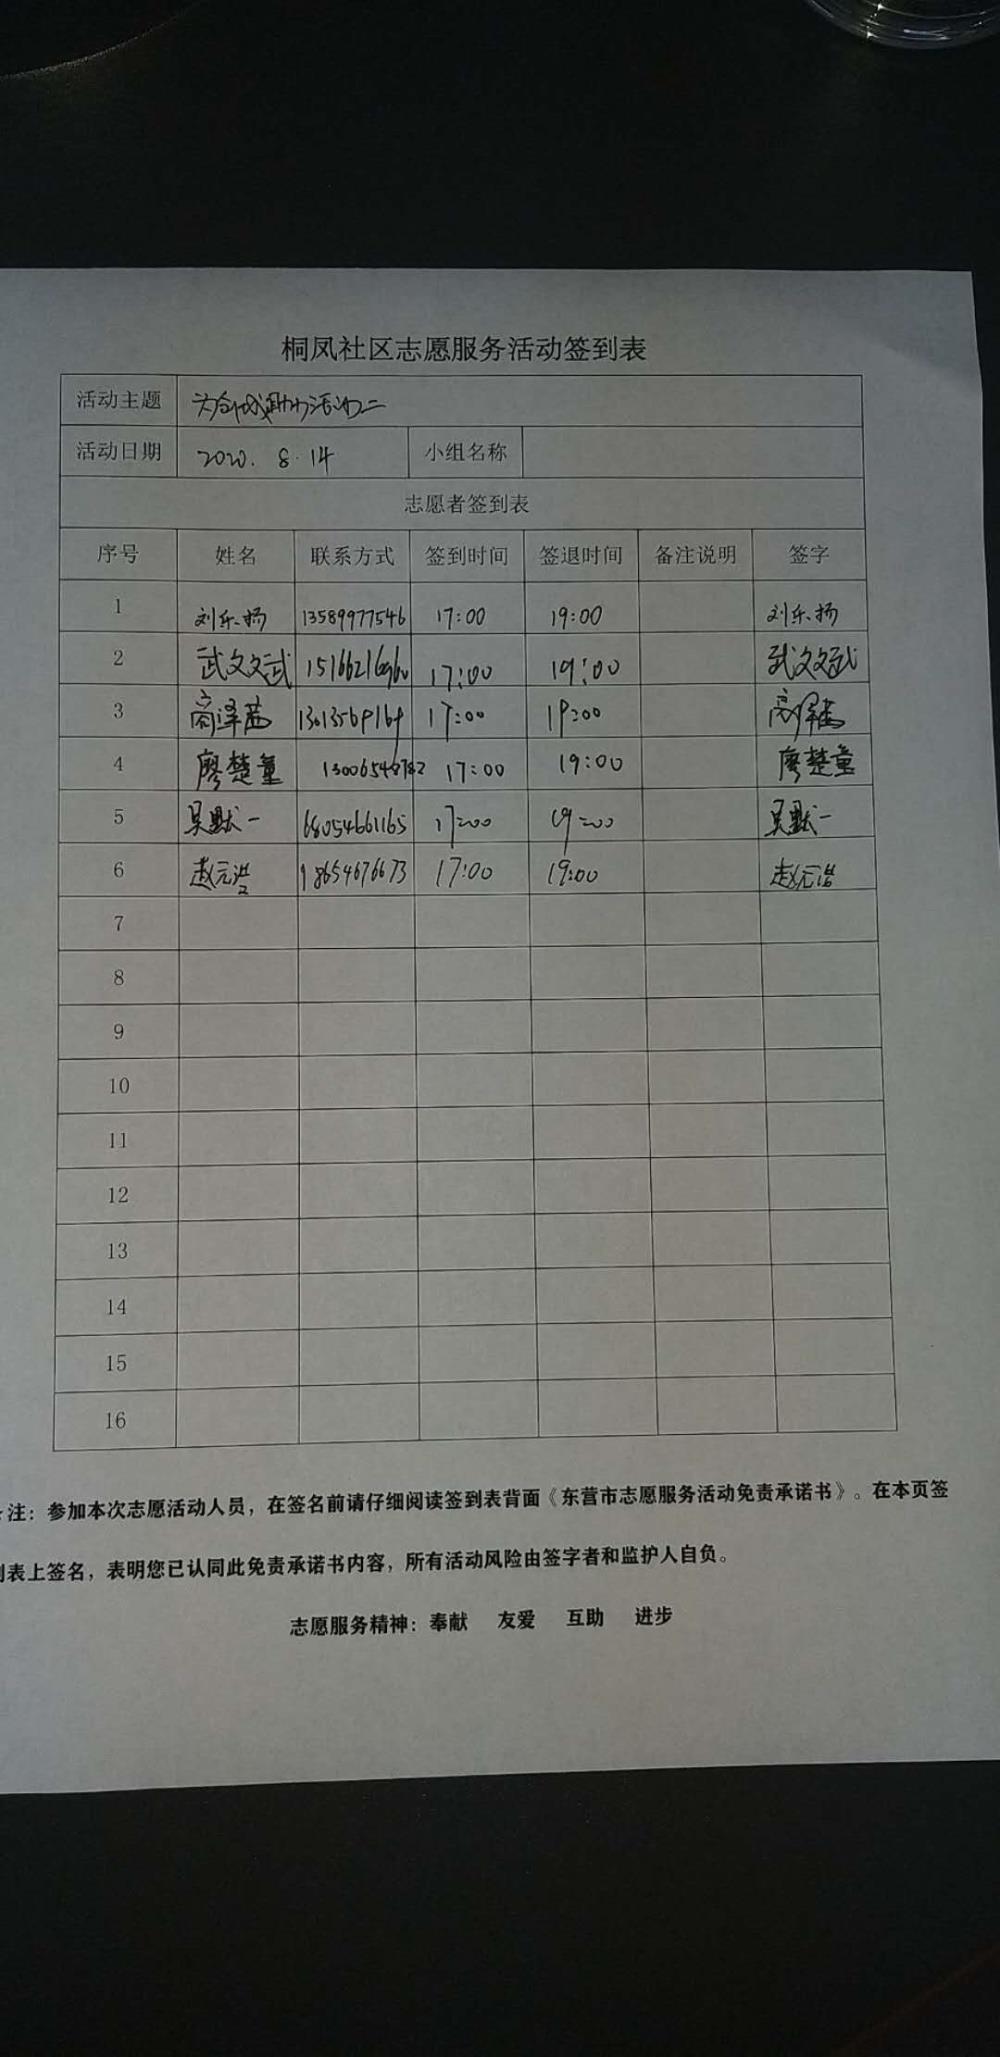 桐凤社区志愿服务活动签到表
活动主题
活动日期 2020. 8.14 小组名称
志愿者签到表
序号 姓名 联系方式 签到时间 签退时间 备注说明 签字
1 刘乐扬 13589977546 17:00 19:00 刘乐扬
2 武文文武 17:00 19:00 武文文武
3 高泽茜 17:00 19:00 高泽茜
4 廖楚童 17:00 19:00 廖楚童
5 吴默一 68054661165 17:00 19:00 吴默一
6 赵元浩 18654676673 17:00 19:00 赵元浩
7
8
9
10
11
12
13
14
15
16
注：参加本次志愿活动人员，在签名前请仔细阅读签到表背面《东营市志愿服务活动免责承诺书》。在本页签
到表上签名，表明您已认同此免责承诺书内容，所有活动风险由签字者和监护人自负。
志愿服务精神：奉献 友爱 互助 进步